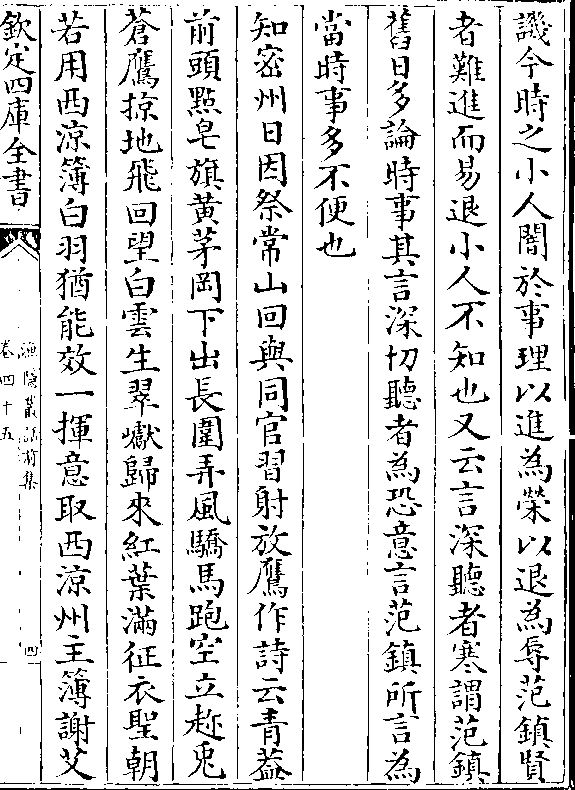 譏今時之小人闇於事理以進為榮以退為辱范鎮賢
者難進而易退小人不知也又云言深聽者寒謂范鎮
舊日多論時事其言深切聽者為恐意言范鎮所言為
當時事多不便也
知密州日因祭常山回與同官習射放鷹作詩云青葢
前頭㸃皂旗黄茅岡下出長圍弄風驕馬跑空立趂兎
蒼鷹掠地飛回望白雲生翠巘歸來紅葉滿征衣聖朝
若用西涼簿白羽猶能效一揮意取西涼州主簿謝艾
欽定四庫全書
漁隱叢話前集
卷四十五
四